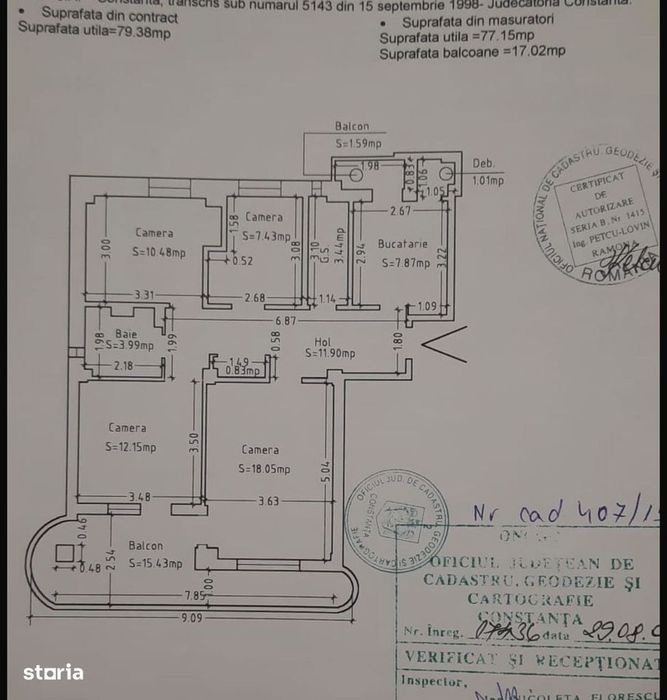 Constanta, transcris sub numarul 5143 din 15 septembrie 1998- Judecatoria Constanta.
• Suprafata din contract
Suprafata utila=79.38mp
• Suprafata din masuratori
Suprafata utila =77.15mp
Suprafata balcoane =17.02mp
Balcon
S=1.59mp
1.98
0.83
1.06
1.05
Deb.
1.01mp
Camera
S=10.48mp
3.00
3.31
Camera
S=7.43mp
1.58
0.52
3.08
2.68
3.10
G.S.
3.44mp
1.14
2.67
Bucatarie
S=7.87mp
2.94
3.22
1.09
6.87
Baie
S=3.99mp
1.98
1.99
2.18
0.58
1.49
0.83mp
Hol
S=11.90mp
1.80
Camera
S=12.15mp
3.50
3.48
Camera
S=18.05mp
5.04
3.63
Balcon
S=15.43mp
0.46
0.48
2.54
1.00
7.85
9.09
OFICIUL NAŢIONAL DE CADASTRU, GEODEZIE ŞI
CERTIFICAT
DE
AUTORIZARE
SERIA B. Nr. 1415
Ing. PETCU-LOVIN
RAMONA
ROMANIA
OFICIUL JUD. DE CADASTRU, GEODEZIE ŞI CARTOGRAFIE
CONSTANŢA
Nr cad 407/1
OFICIUL JUDEŢEAN DE
CADASTRU, GEODEZIE ŞI
CARTOGRAFIE
CONSTANŢA
Nr. Înreg. data 29.08.
VERIFICAT ŞI RECEPŢIONAT
Inspector,
NICOLETA FLORESCU
storia